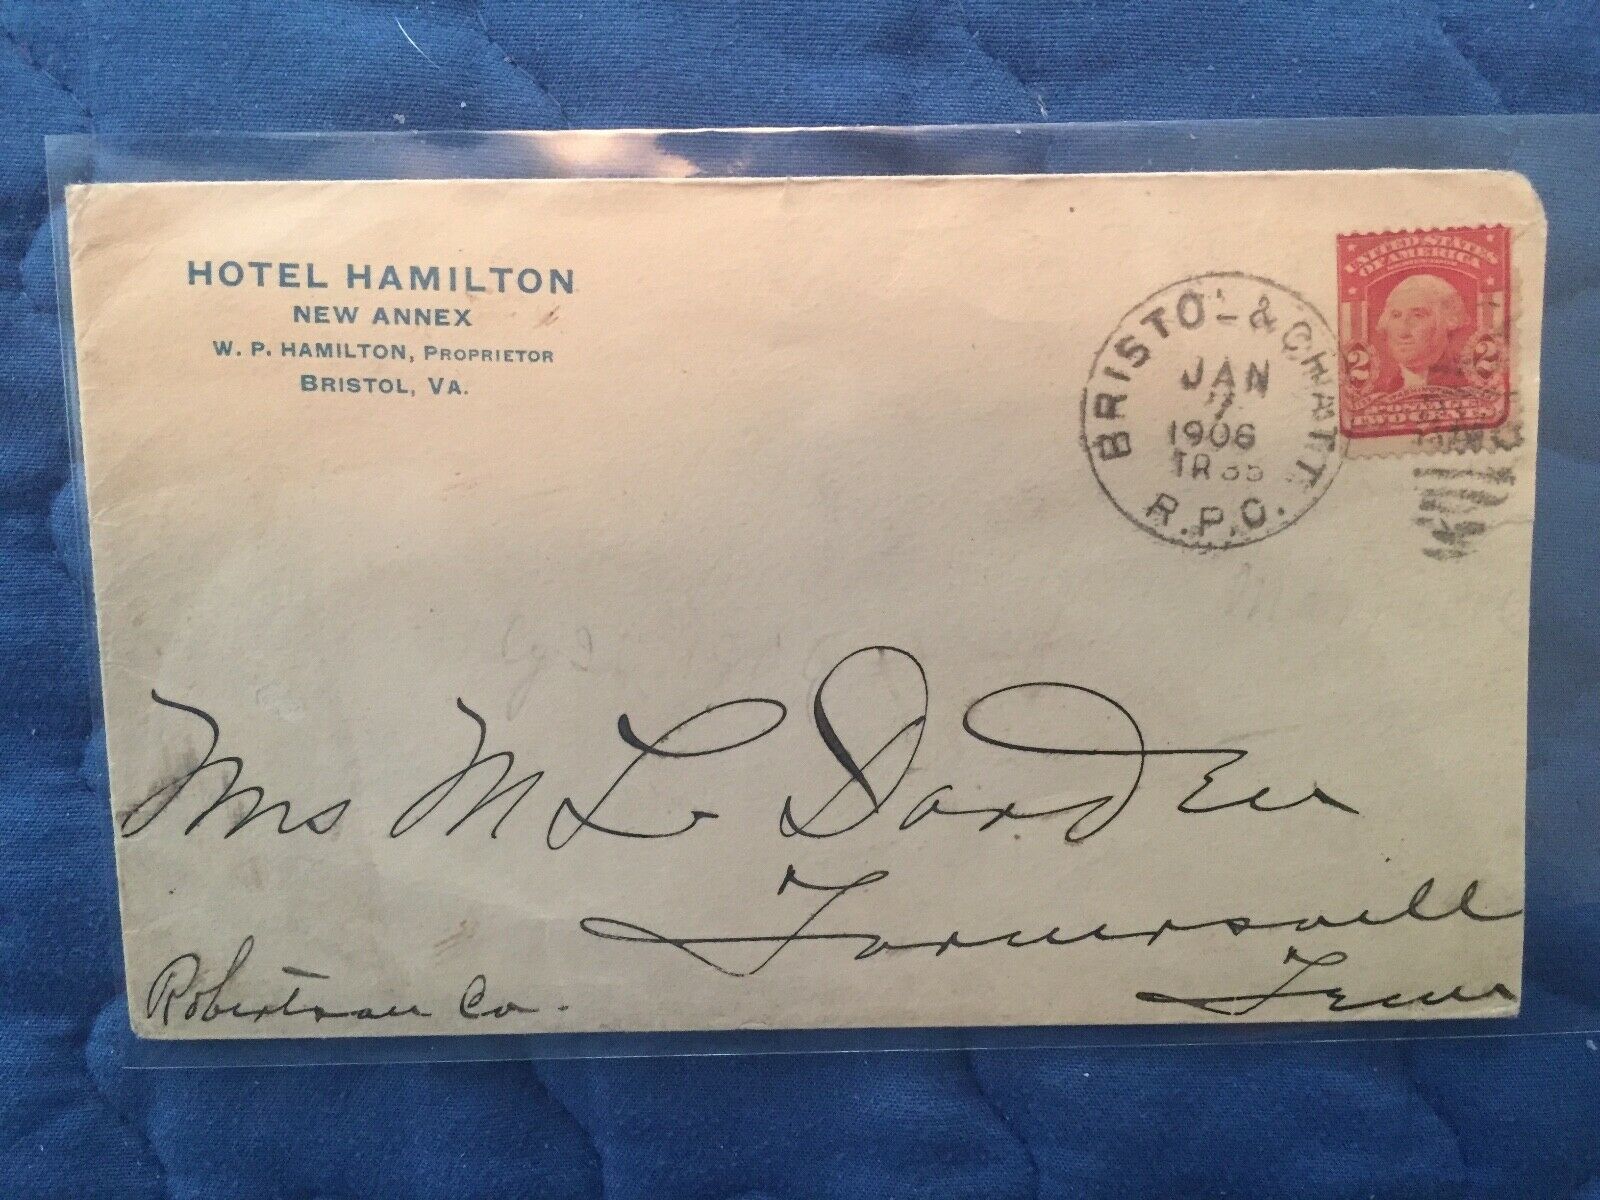 HOTEL HAMILTON
NEW ANNEX
W. P. HAMILTON, PROPRIETOR
BRISTOL, VA.
BRISTOL & CHATT.
JAN
7
1906
TR 35
R.P.O.
UNITED STATES
OF AMERICA
2 2
Mrs M L Darden
Turnersvill
Tenn
Robertson Co.